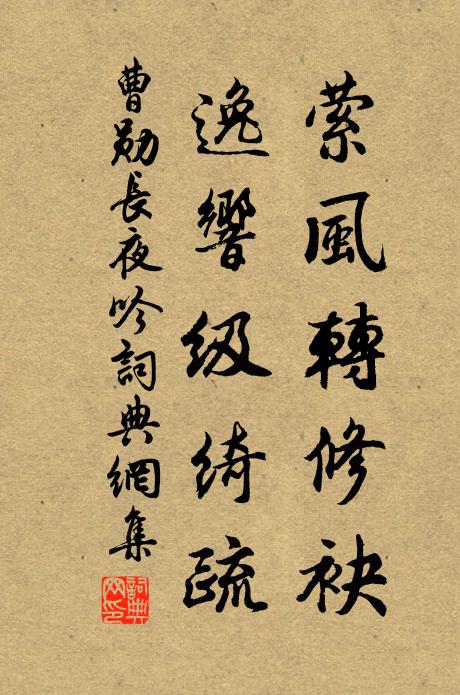 縈風轉修袂
逸響級綺疏
曹勛長夜吟詞典網集
詞典網印